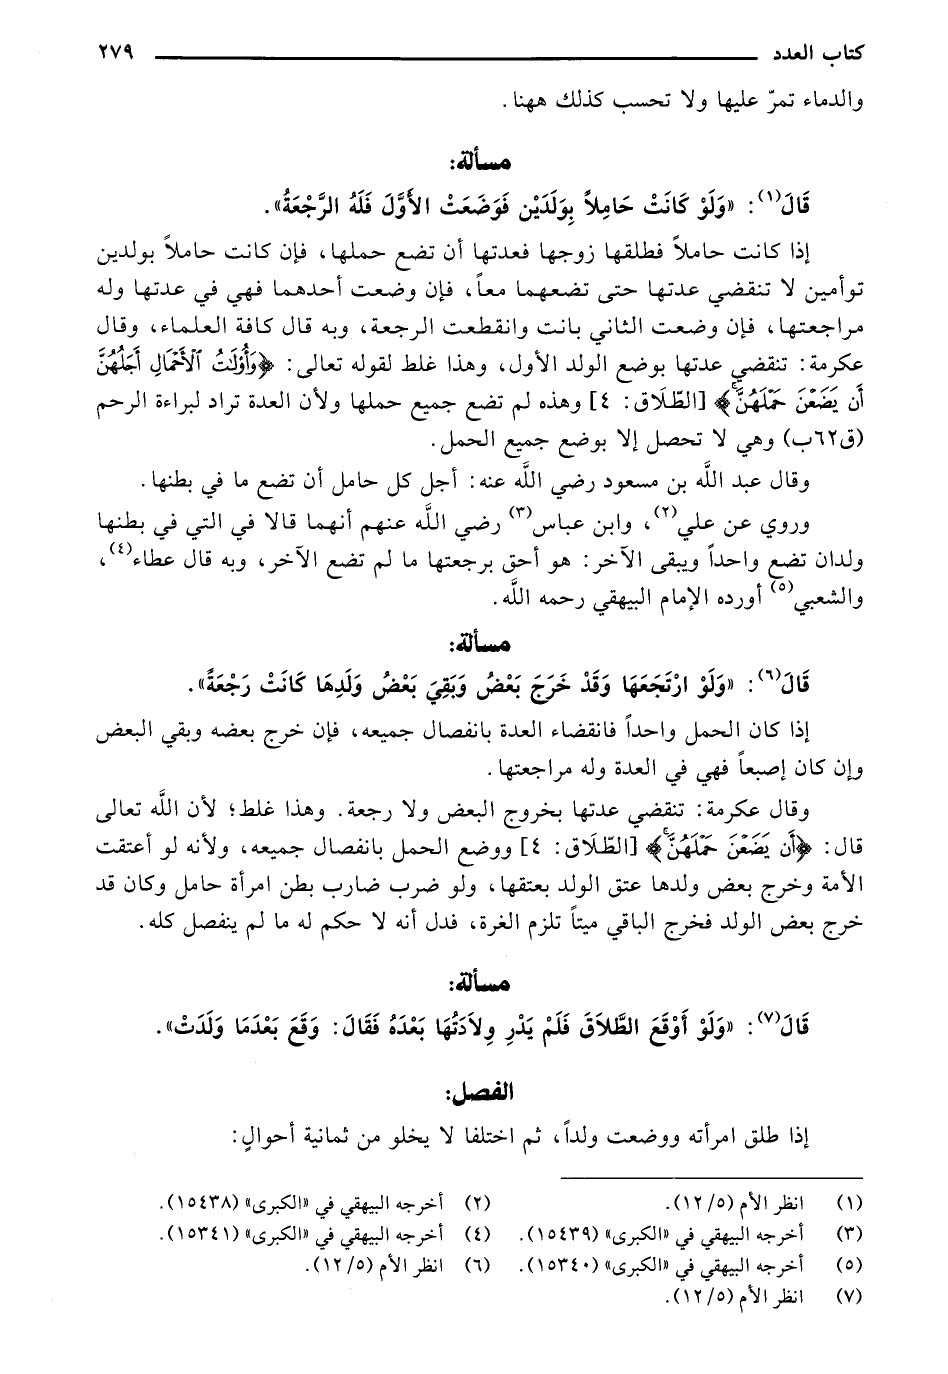 كتاب العدد ٢٧٩
والدماء تمرّ عليها ولا تحسب كذلك ههنا.
مسألة:
قَالَ(١): «وَلَوْ كَانَتْ حَامِلاً بِوَلَدَيْنِ فَوَضَعَتْ الأَوَّلَ فَلَهُ الرَّجْعَةُ».
إذا كانت حاملاً فطلقها زوجها فعدتها أن تضع حملها، فإن كانت حاملاً بولدين
توأمين لا تنقضي عدتها حتى تضعهما معاً، فإن وضعت أحدهما فهي في عدتها وله
مراجعتها، فإن وضعت الثاني بانت وانقطعت الرجعة، وبه قال كافة العلماء، وقال
عكرمة: تنقضي عدتها بوضع الولد الأول، وهذا غلط لقوله تعالى: ﴿وَأُوْلَٰتُ ٱلْأَحْمَالِ أَجَلُهُنَّ
أَن يَضَعْنَ حَمْلَهُنَّۚ﴾ [الطّلَاق: ٤] وهذه لم تضع جميع حملها ولأن العدة تراد لبراءة الرحم
(ق٦٢ب) وهي لا تحصل إلا بوضع جميع الحمل.
وقال عبد اللَّه بن مسعود رضي اللَّه عنه: أجل كل حامل أن تضع ما في بطنها.
وروي عن علي(٢)، وابن عباس(٣) رضي اللَّه عنهم أنهما قالا في التي في بطنها
ولدان تضع واحداً ويبقى الآخر: هو أحق برجعتها ما لم تضع الآخر، وبه قال عطاء(٤)،
والشعبي(٥) أورده الإمام البيهقي رحمه اللَّه.
مسألة:
قَالَ(٦): «وَلَوْ ارْتَجَعَهَا وَقَدْ خَرَجَ بَعْضُ وَبَقِيَ بَعْضُ وَلَدِهَا كَانَتْ رَجْعَةً».
إذا كان الحمل واحداً فانقضاء العدة بانفصال جميعه، فإن خرج بعضه وبقي البعض
وإن كان إصبعاً فهي في العدة وله مراجعتها.
وقال عكرمة: تنقضي عدتها بخروج البعض ولا رجعة. وهذا غلط؛ لأن اللَّه تعالى
قال: ﴿أَن يَضَعْنَ حَمْلَهُنَّۚ﴾ [الطّلَاق: ٤] ووضع الحمل بانفصال جميعه، ولأنه لو أعتقت
الأمة وخرج بعض ولدها عتق الولد بعتقها، ولو ضرب ضارب بطن امرأة حامل وكان قد
خرج بعض الولد فخرج الباقي ميتاً تلزم الغرة، فدل أنه لا حكم له ما لم ينفصل كله.
مسألة:
قَالَ(٧): «وَلَوْ أَوْقَعَ الطَّلاَقَ فَلَمْ يَدْرِ وِلاَدَتُهَا بَعْدَهُ فَقَالَ: وَقَعَ بَعْدَمَا وَلَدَتْ».
الفصل:
إذا طلق امرأته ووضعت ولداً، ثم اختلفا لا يخلو من ثمانية أحوالٍ:
(١) انظر الأم (٥/ ١٢). (٢) أخرجه البيهقي في «الكبرى» (١٥٤٣٨).
(٣) أخرجه البيهقي في «الكبرى» (١٥٤٣٩). (٤) أخرجه البيهقي في «الكبرى» (١٥٣٤١).
(٥) أخرجه البيهقي في «الكبرى» (١٥٣٤٠). (٦) انظر الأم (٥/ ١٢).
(٧) انظر الأم (٥/ ١٢).